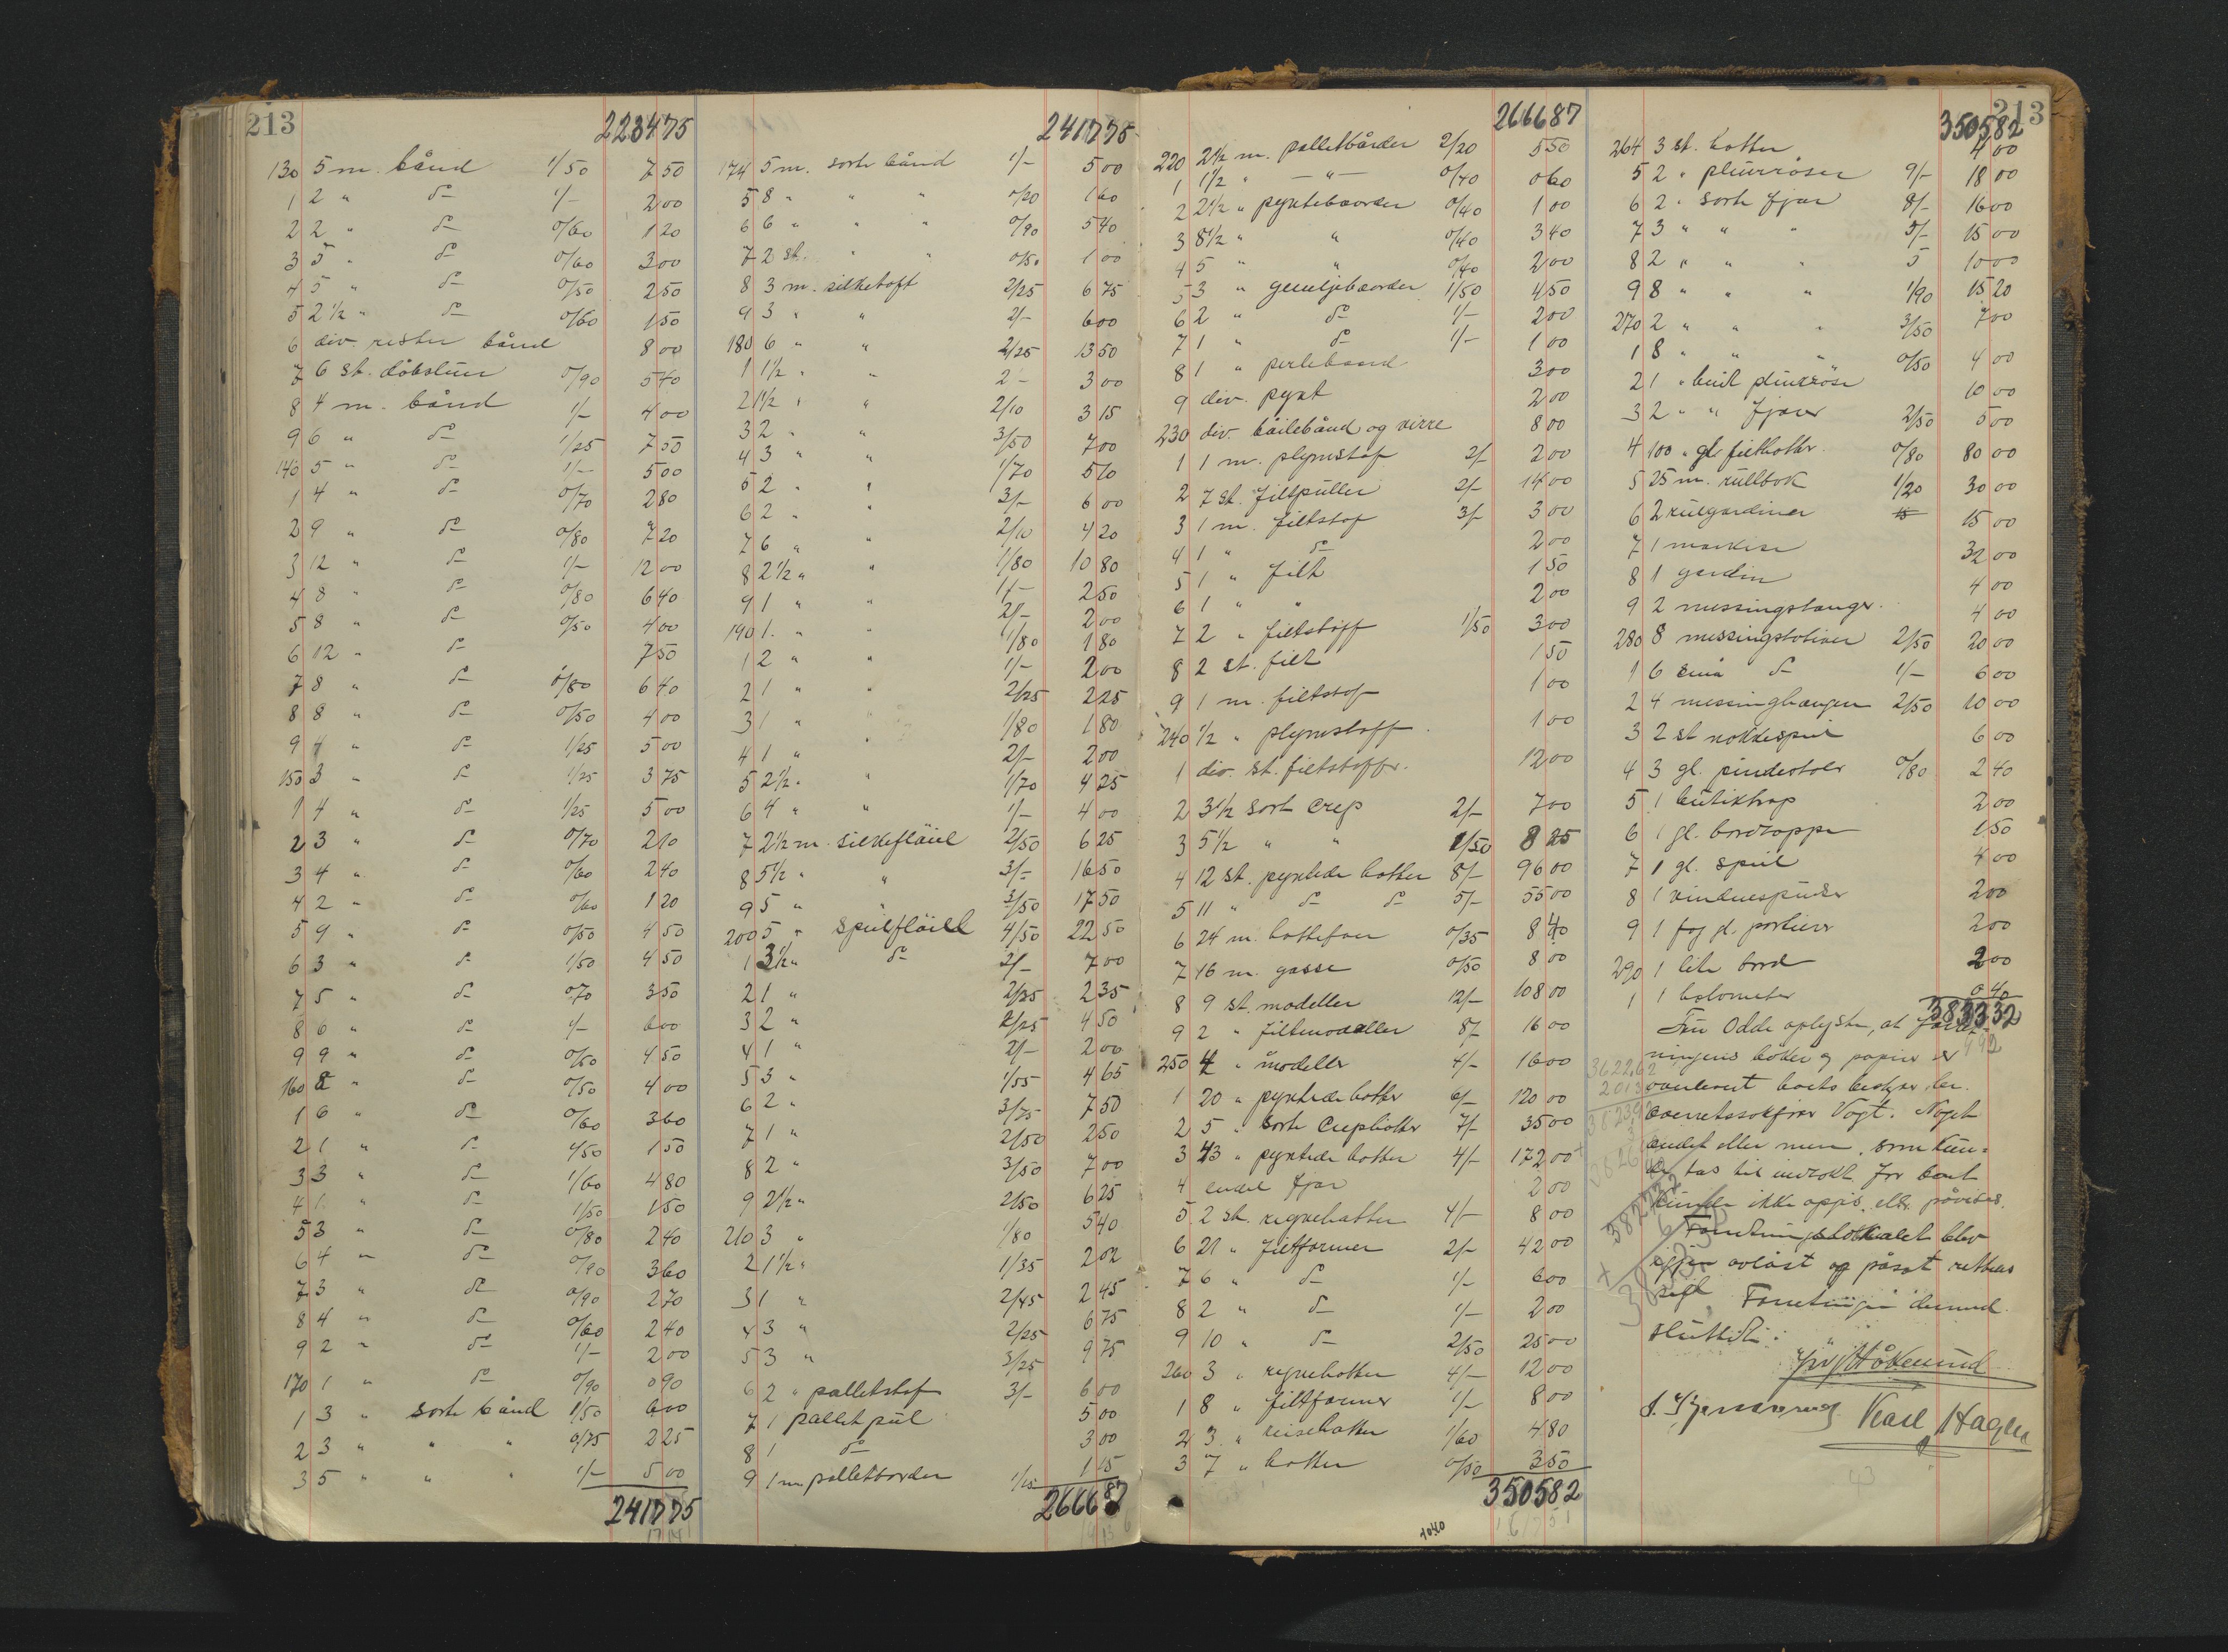 213
223475
130 5 m. bånd 1/50 7 50
1 2 " do 1/- 2 00
2 2 " do 0/60 1 20
3 5 " do 0/60 3 00
4 5 " do 0/50 2 50
5 2 1/2 " do 0/60 1 50
6 div. rester bånd 8 00
7 6 st. 0/90 5 40
8 4 m. bånd 1/- 4 00
9 6 " do 1/25 7 50
140 5 " do 1/- 5 00
1 4 " do 0/70 2 80
2 9 " do 0/80 7 20
3 12 " do 1/- 12 00
4 8 " do 0/80 6 40
5 8 " do 0/50 4 00
6 12 " do 7 50
7 8 " do 0/80 6 40
8 8 " do 0/50 4 00
9 4 " do 1/25 5 00
150 3 " do 1/25 3 75
1 4 " do 1/25 5 00
2 3 " do 0/70 2 10
3 4 " do 0/60 2 40
4 2 " do 0/60 1 20
5 9 " do 0/50 4 50
6 3 " do 1/50 4 50
7 5 " do 0/70 3 50
8 6 " do 1/- 6 00
9 9 " do 0/50 4 50
160 8 " do 0/50 4 00
1 6 " do 0/60 3 60
2 1 " do 1/50 1 50
3 3 " do 1/60 4 80
4 1 " do 1/50 1 50
5 3 " do 0/80 2 40
6 4 " do 0/90 3 60
7 3 " do 0/90 2 70
8 4 " do 0/60 2 40
9 2 " do 1/- 2 00
170 1 " do 0/90 0 90
1 3 " sorte bånd 1/50 6 00
2 3 " " " 0/75 2 25
3 5 " " " 1/- 5 00
241775
241775
174 5 m. sorte bånd 1/- 5 00
5 8 " " " 0/20 1 60
6 6 " " " 0/90 5 40
7 2 st. " " 0/50 1 00
8 3 m. silketoft 2/25 6 75
9 3 " " 2/- 6 00
180 6 " " 2/25 13 50
1 1 1/2 " " 2/- 3 00
2 1 1/2 " " 2/10 3 15
3 2 " " 3/50 7 00
4 3 " " 1/70 5 10
5 2 " " 3/- 6 00
6 2 " " 2/10 4 20
7 6 " " 1/80 10 80
8 2 1/2 " " 1/- 2 50
9 1 " " 2/- 2 00
190 1 " " 1/80 1 80
1 2 " " 1/- 2 00
2 1 " " 2/25 2 25
3 1 " " 1/80 1 80
4 1 " " 2/- 2 00
5 2 1/2 " " 1/70 4 25
6 4 " " 1/- 4 00
7 2 1/2 m. silkefløiel 2/50 6 25
8 5 1/2 " " 3/- 16 50
9 5 " " 3/50 17 50
200 5 " 4/50 22 50
1 3 1/2 " do 2/- 7 00
2 1 " 2/35 2 35
3 2 " 2/25 4 50
4 1 " 2/- 2 00
5 3 " 1/55 4 65
6 2 " 3/75 7 50
7 1 " 2/50 2 50
8 2 " 3/50 7 00
9 2 1/2 " 2/50 6 25
210 3 " 1/80 5 40
2 1 1/2 " 1/35 2 02
3 1 " 2/45 2 45
4 3 " 2/25 6 75
5 3 " 3/25 9 75
6 2 " palletstof 3/- 6 00
7 1 pallet pul 5 00
8 1 do 3 00
9 1 m palletborder 1/15 1 15
266687
266687
220 2 1/2 m. palletbårder 2/20 5 50
1 1 1/2 " - " - 0/40 0 60
2 2 1/2 " pyntebaarder 0/40 1 00
3 8 1/2 " " 0/40 3 40
4 5 " " 0/40 2 00
5 3 " 1/50 4 50
6 2 " do 1/- 2 00
7 1 " do 1/- 1 00
8 1 " perlebaand 3 00
9 div. pynt 2 00
230 div. bøilebånd og virre 8 00
1 1 m. plymstof 2/- 2 00
2 7 st. filtpuller 2/- 14 00
3 1 m. filtstof 3/- 3 00
4 1 " do 2 00
5 1 " filt 1 50
6 1 " " 2 00
7 2 " filtstoff 1/50 3 00
8 2 st. filt 1 50
9 1 m. filtstof 1 00
240 1/2 " plymstoff 1 00
1 div. st. filtstoffr. 12 00
2 3 1/2 sort crep 2/- 7 00
3 5 1/2 " " 1/50 8 25
4 12 st. pyntede hatter 8/- 96 00
5 11 " do do 5/- 55 00
6 24 m. hattefoer 0/35 8 40
7 16 m. gasse 0/50 8 00
8 9 st. modeller 12/- 108 00
9 2 " filtmodeller 8/- 16 00
250 4 " modeller 4/- 16 00
1 20 " pyntede hatter 6/- 120 00
2 5 " sorte crephatter 7/- 35 00
3 43 " pyntede hatter 4/- 172 00
4 endel fjær 2 00
5 2 st. regnehatter 4/- 8 00
6 21 " filtformer 2/- 42 00
7 6 " do 1/- 6 00
8 2 " do 1/- 2 00
9 10 " do 2/50 25 00
260 3 " regnehatter 4/- 12 00
1 8 " filtformer 1/- 8 00
2 3 " reisehatter 1/60 4 80
3 7 " hatter 0/50 3 50
350582
1040
213
350582
264 3 st. hatter 4 00
5 2 " pleurøser 9/- 18 00
6 2 " sorte fjær 8/- 16 00
7 3 " " " 5/- 15 00
8 2 " " " 5 10 00
9 8 " " " 1/90 15 20
270 2 " " " 3/50 7 00
1 8 " " " 0/50 4 00
2 1 " hvit pleurøse 10 00
3 2 " " fjærer 2/50 5 00
4 100 " gl. filthatter 0/80 80 00
5 25 m. rullbok 1/20 30 00
6 2 rulgardiner 15 15 00
7 1 markise 32 00
8 1 gardin 4 00
9 2 messingstanger. 4 00
280 8 messingstativer 2/50 20 00
1 6 små do 1/- 6 00
2 4 2/50 10 00
3 2 st nokkespeil 6 00
4 3 gl. pindestoler 0/80 2 40
5 1 butiktrap 2 00
6 1 gl. bordtæppe 1 50
7 1 gl. speil 4 00
8 1 vinduespudser 2 00
9 1 fag gl. portierer 2 00
290 1 lite bord 2 00
1 1 0 40
383332
Fru Odde oplyste, at forret-
ningens bøker og papirer er
overlevert boets bestyrer, hr.
overretssakfører Vogt. Noget
andet eller mere, som kun-
de tas til indtækt for boet
kunde ikke opgis eller påvises.
Forretningslokalet blev
igjen avlåst og påsat rettens
segl. Forretningen dermed
sluttet:
Karl Hagen
43